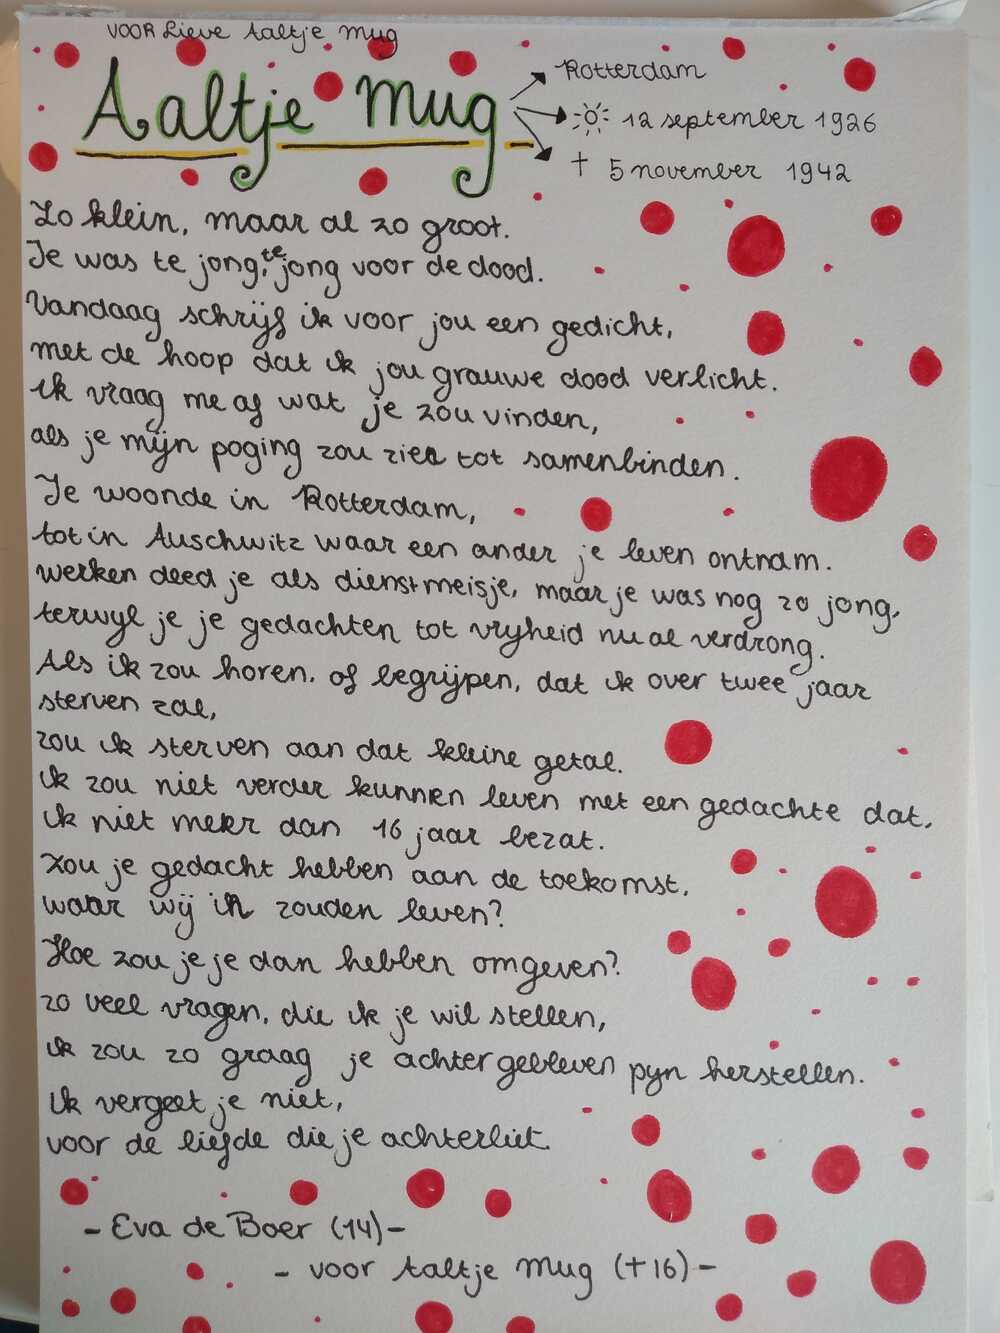 VOOR Lieve Aaltje Mug
Aaltje Mug
Rotterdam
12 september 1926
† 5 november 1942
Zo klein, maar al zo groot.
Je was te jong, te jong voor de dood.
Vandaag schrijf ik voor jou een gedicht,
met de hoop dat ik jou grauwe dood verlicht.
ik vraag me af wat je zou vinden,
als je mijn poging zou zien tot samenbinden.
Je woonde in Rotterdam,
tot in Auschwitz waar een ander je leven ontnam.
werken deed je als dienstmeisje, maar je was nog zo jong,
terwyl je je gedachten tot vryheid nu al verdrong.
Als ik zou horen, of begrijpen, dat ik over twee jaar
sterven zal,
zou ik sterven aan dat kleine getal.
ik zou niet verder kunnen leven met een gedachte dat,
ik niet meer dan 16 jaar bezat.
Zou je gedacht hebben aan de toekomst,
waar wij in zouden leven?
Hoe zou je je dan hebben omgeven?
zo veel vragen, die ik je wil stellen,
ik zou zo graag je achtergebleven pyn herstellen.
ik vergeet je niet,
voor de liefde die je achterliet.
- Eva de Boer (14) -
- voor Aaltje Mug (†16) -